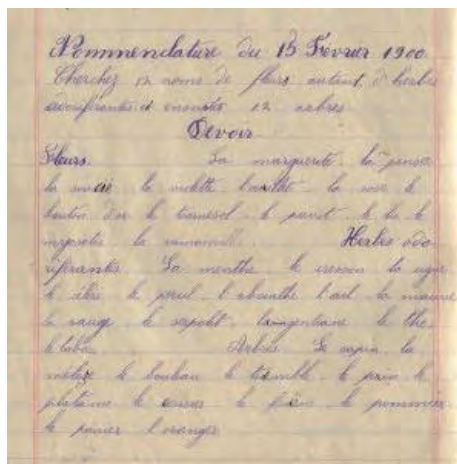 Nommenclature du 15 Fevrier 1900
Cherchez 12 noms de fleurs autant d'herbes
odoriférantes et ensuite 12 arbres
Devoir
Fleurs. La marguerite la pensée
la la violette l'œillet la rose le
bouton d'or le tournesol le pavot le lis le
myosotis la camomille. Herbes odo
riférantes. La menthe le cresson la
le le persil l'absinthe l'ail la mauve
la sauge le serpolet la gentiane le thé
le tabac Arbres Le sapin le
mélèze le bouleau le tremble le pin le
platane le le frêne le pommier
le l'oranger